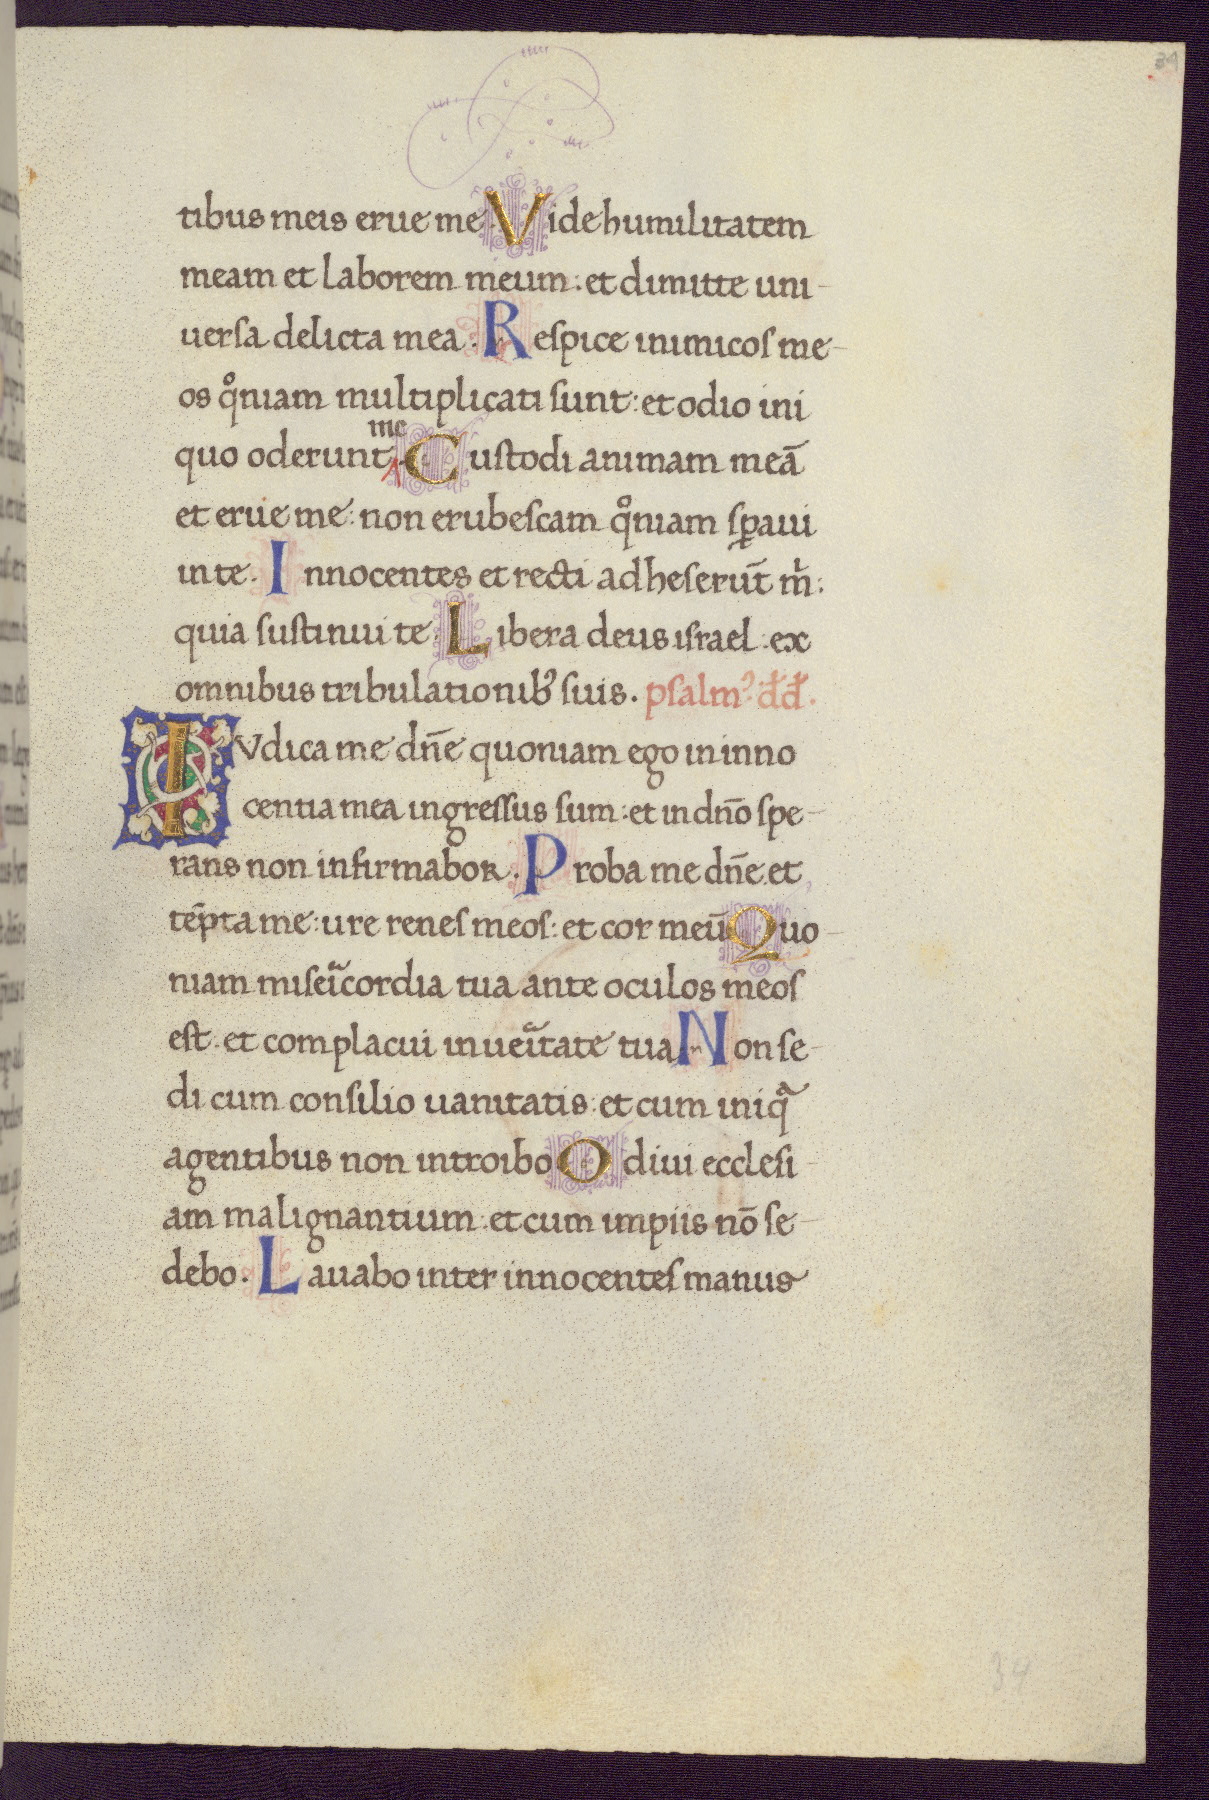 34
tibus meis erue me. Vide humilitatem
meam et laborem meum: et dimitte uni-
uersa delicta mea. Respice inimicos me-
os qͦniam multiplicati sunt: et odio ini
quo oderunt me. Custodi animam meā
et erue me: non erubescam qͦniam sꝑaui
in te. Innocentes et recti adheserūt m̄:
quia sustinui te. Libera deus israel: ex
omnibus tribulationibꝰ suis. psalmꝰ dd̄.
IVdica me dn̄e quoniam ego in inno
centia mea ingressus sum: et in dn̄o spe-
rans non infirmabor. Proba me dn̄e et
tēpta me: ure renes meos: et cor meū. Quo-
niam misericordia tua ante oculos meos
est: et complacui in ueritate tua. Non se-
di cum consilio uanitatis: et cum iniqͣ
agentibus non introibo. Odiui ecclesi-
am malignantium: et cum impiis nō se-
debo. Lauabo inter innocentes manus
34